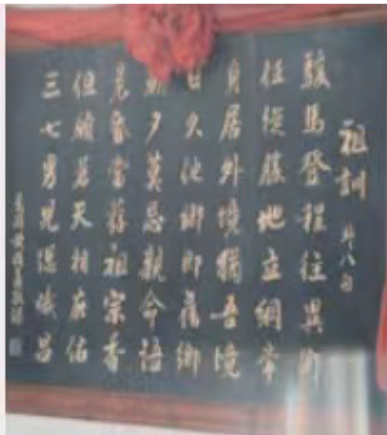 祖訓 外八句
駿馬登程往異方
任從勝地立綱常
身居外境猶吾境
日久他鄉即舊鄉
朝夕莫忘親命語
晨昏當薦祖宗香
但願蒼天相庇佑
三七男兒總熾昌